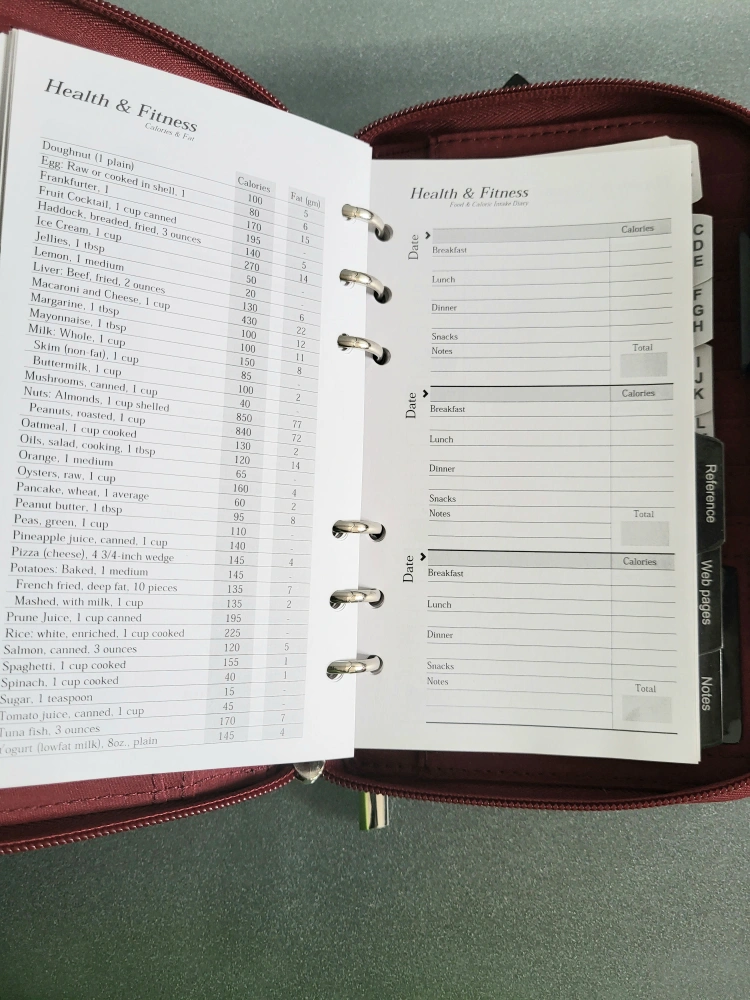 Health & Fitness
Calories & Fat
Calories Fat (gm)
Doughnut (1 plain) 100 5
Egg: Raw or cooked in shell, 1 80 6
Frankfurter, 1 170 15
Fruit Cocktail, 1 cup canned 195 -
Haddock, breaded, fried, 3 ounces 140 5
Ice Cream, 1 cup 270 14
Jellies, 1 tbsp 50 -
Lemon, 1 medium 20 -
Liver: Beef, fried, 2 ounces 130 6
Macaroni and Cheese, 1 cup 430 22
Margarine, 1 tbsp 100 12
Mayonnaise, 1 tbsp 100 11
Milk: Whole, 1 cup 150 8
Skim (non-fat), 1 cup 85 -
Buttermilk, 1 cup 100 2
Mushrooms, canned, 1 cup 40 -
Nuts: Almonds, 1 cup shelled 850 77
Peanuts, roasted, 1 cup 840 72
Oatmeal, 1 cup cooked 130 2
Oils, salad, cooking, 1 tbsp 120 14
Orange, 1 medium 65 -
Oysters, raw, 1 cup 160 4
Pancake, wheat, 1 average 60 2
Peanut butter, 1 tbsp 95 8
Peas, green, 1 cup 110 -
Pineapple juice, canned, 1 cup 140 -
Pizza (cheese), 4 3/4-inch wedge 145 4
Potatoes: Baked, 1 medium 145 -
French fried, deep fat, 10 pieces 135 7
Mashed, with milk, 1 cup 135 2
Prune Juice, 1 cup canned 195 -
Rice: white, enriched, 1 cup cooked 225 -
Salmon, canned, 3 ounces 120 5
Spaghetti, 1 cup cooked 155 1
Spinach, 1 cup cooked 40 1
Sugar, 1 teaspoon 15 -
Tomato juice, canned, 1 cup 45 -
Tuna fish, 3 ounces 170 7
Yogurt (lowfat milk), 8oz., plain 145 4
Health & Fitness
Food & Caloric Intake Diary
Date
Calories
Breakfast
Lunch
Dinner
Snacks
Notes Total
Date
Calories
Breakfast
Lunch
Dinner
Snacks
Notes Total
Date
Calories
Breakfast
Lunch
Dinner
Snacks
Notes
Total
C
D
E
F
G
H
I
J
K
L
Reference
Web pages
Notes